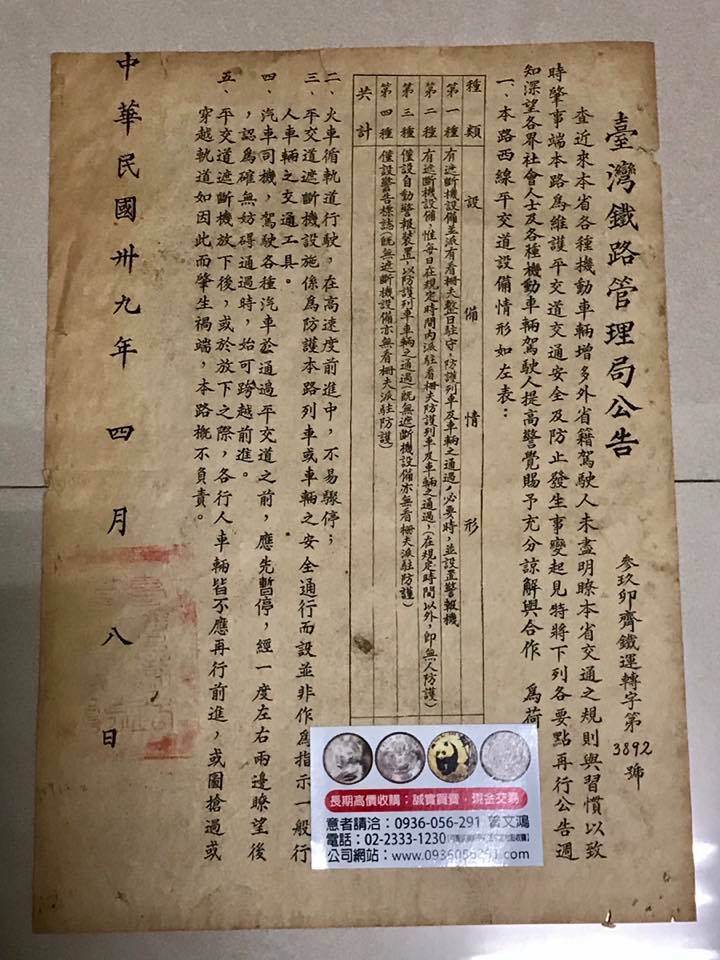 臺灣鐵路管理局公告
參玖卯齊鐵運轉字第3892號
查近來本省各種機動車輛增多外省籍駕駛人未盡明瞭本省交通之規則與習慣以致
時肇事端本路為維護平交道交通安全及防止發生事變起見特將下列各要點再行公告週
知深望各界社會人士及各種機動車輛駕駛人提高警覺賜予充分諒解與合作 為荷
一、本路西線平交道設備情形如左表：
種類 設備情形
第一種 有遮斷機設備並派有看柵夫整日駐守，防護列車及車輛之通過，必要時，並設置警報機
第二種 有遮斷機設備，惟每日在規定時間內派駐看柵夫防護列車及車輛之通過，（在規定時間以外，即無人防護）
第三種 僅設自動警報裝置，以防護列車車輛之通過（既無遮斷機設備亦無看柵夫派駐防護）
第四種 僅設警告標誌（既無遮斷機設備亦無看柵夫派駐防護）
共計
二、火車循軌道行駛，在高速度前進中，不易驟停；
三、平交道遮斷機設施係為防護本路列車或車輛之安全通行而設並非作為指示一般行
人車輛之交通工具。
四、汽車司機，駕駛各種汽車於通過平交道之前，應先暫停，經一度左右兩邊瞭望後
，認為確無妨碍通過時，始可跨越前進。
五、平交道遮斷機放下後，或於放下之際，各行人車輛皆不應再行前進，或圖搶過或
穿越軌道如因此而肇生禍端，本路概不負責。
中華民國卅九年四月八日
長期高價收購：誠實買賣，現金交易
意者請洽：0936-056-291 曾文鴻
電話：02-2333-1230
公司網站：www.0936056291.com